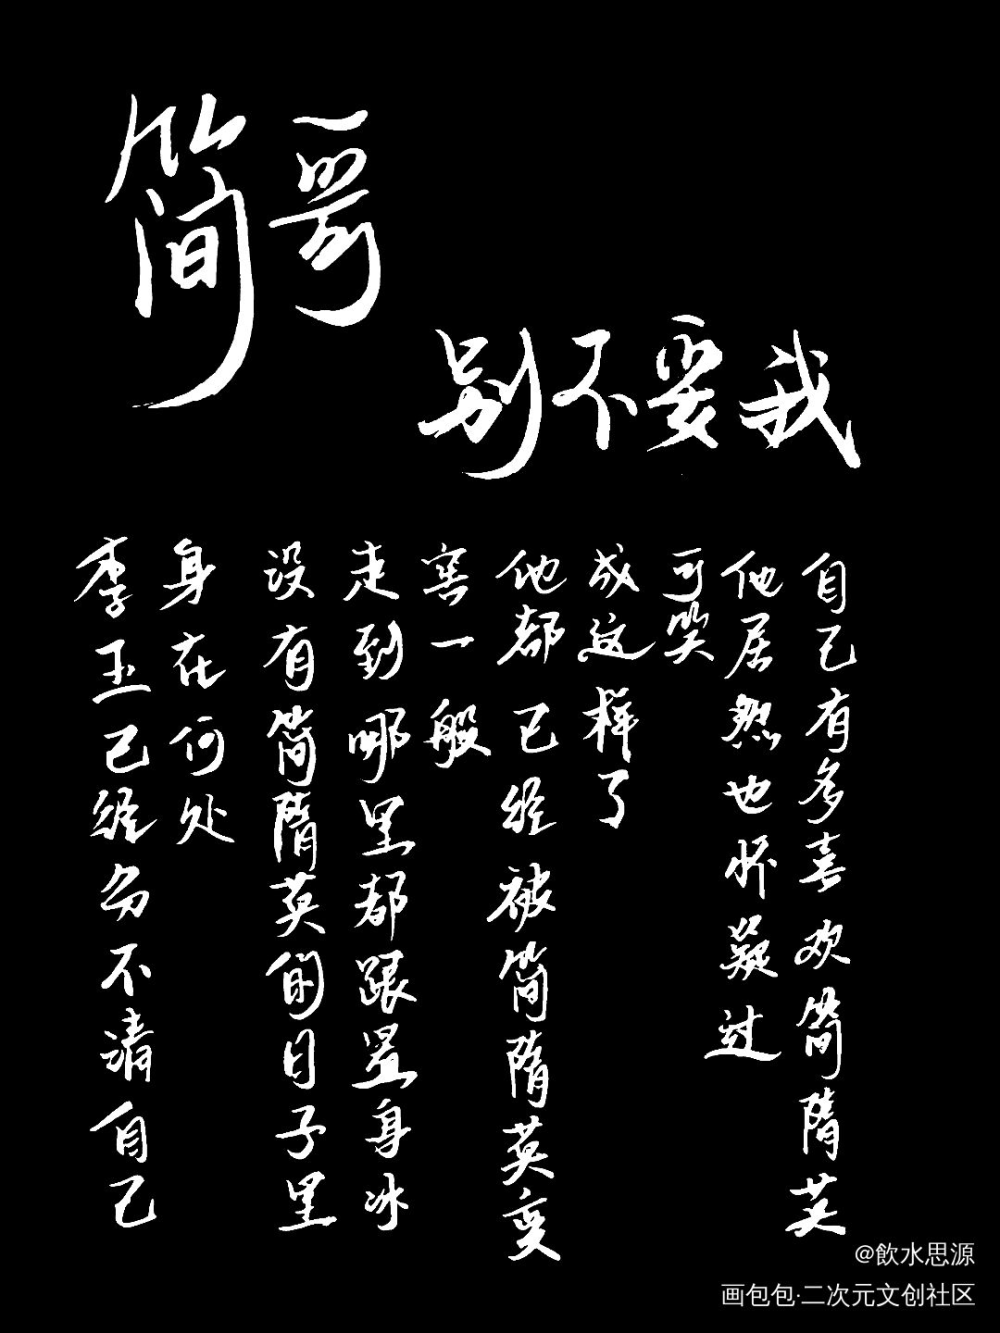 简哥
别不要我
李玉已经分不清自己
身在何处
没有简隋英的日子里
走到哪里都跟置身冰
窖一般
他都已经被简隋英变
成这样了
可笑
他居然也怀疑过
自己有多喜欢简隋英
@飲水思源
画包包·二次元文创社区